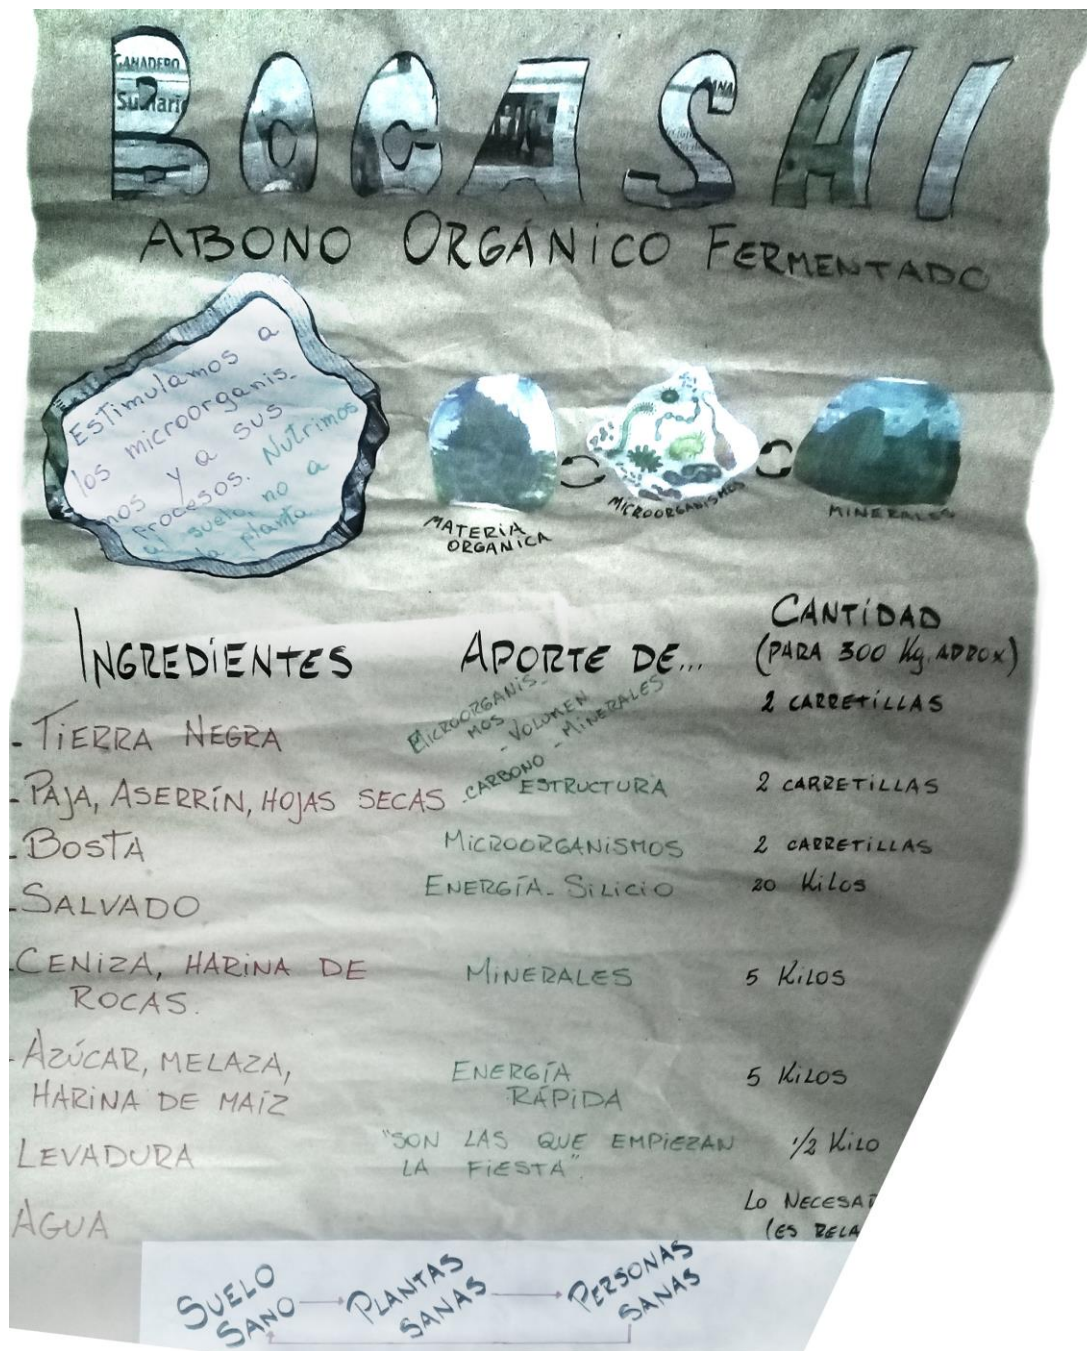 BOCASHI
GANADERO
Sumario
ABONO ORGÁNICO FERMENTADO
Estimulamos a
los microorganis-
mos y a sus
procesos. Nutrimos
al suelo, no a
la planta.
MATERIA
ORGANICA
MICROORGANISMOS
MINERALES
INGREDIENTES
APORTE DE...
CANTIDAD
(PARA 300 Kg. APROX)
- TIERRA NEGRA
MICROORGANIS-
MOS - VOLUMEN
- MINERALES
2 CARRETILLAS
- PAJA, ASERRÍN, HOJAS SECAS
- CARBONO
ESTRUCTURA
2 CARRETILLAS
- BOSTA
MICROORGANISMOS
2 CARRETILLAS
- SALVADO
ENERGÍA - SILICIO
20 KILOS
- CENIZA, HARINA DE
ROCAS.
MINERALES
5 KILOS
- AZÚCAR, MELAZA,
HARINA DE MAÍZ
ENERGÍA
RÁPIDA
5 KILOS
LEVADURA
"SON LAS QUE EMPIEZAN
LA FIESTA"
1/2 KILO
AGUA
LO NECESA
(ES RELA
SUELO
SANO
PLANTAS
SANAS
PERSONAS
SANAS